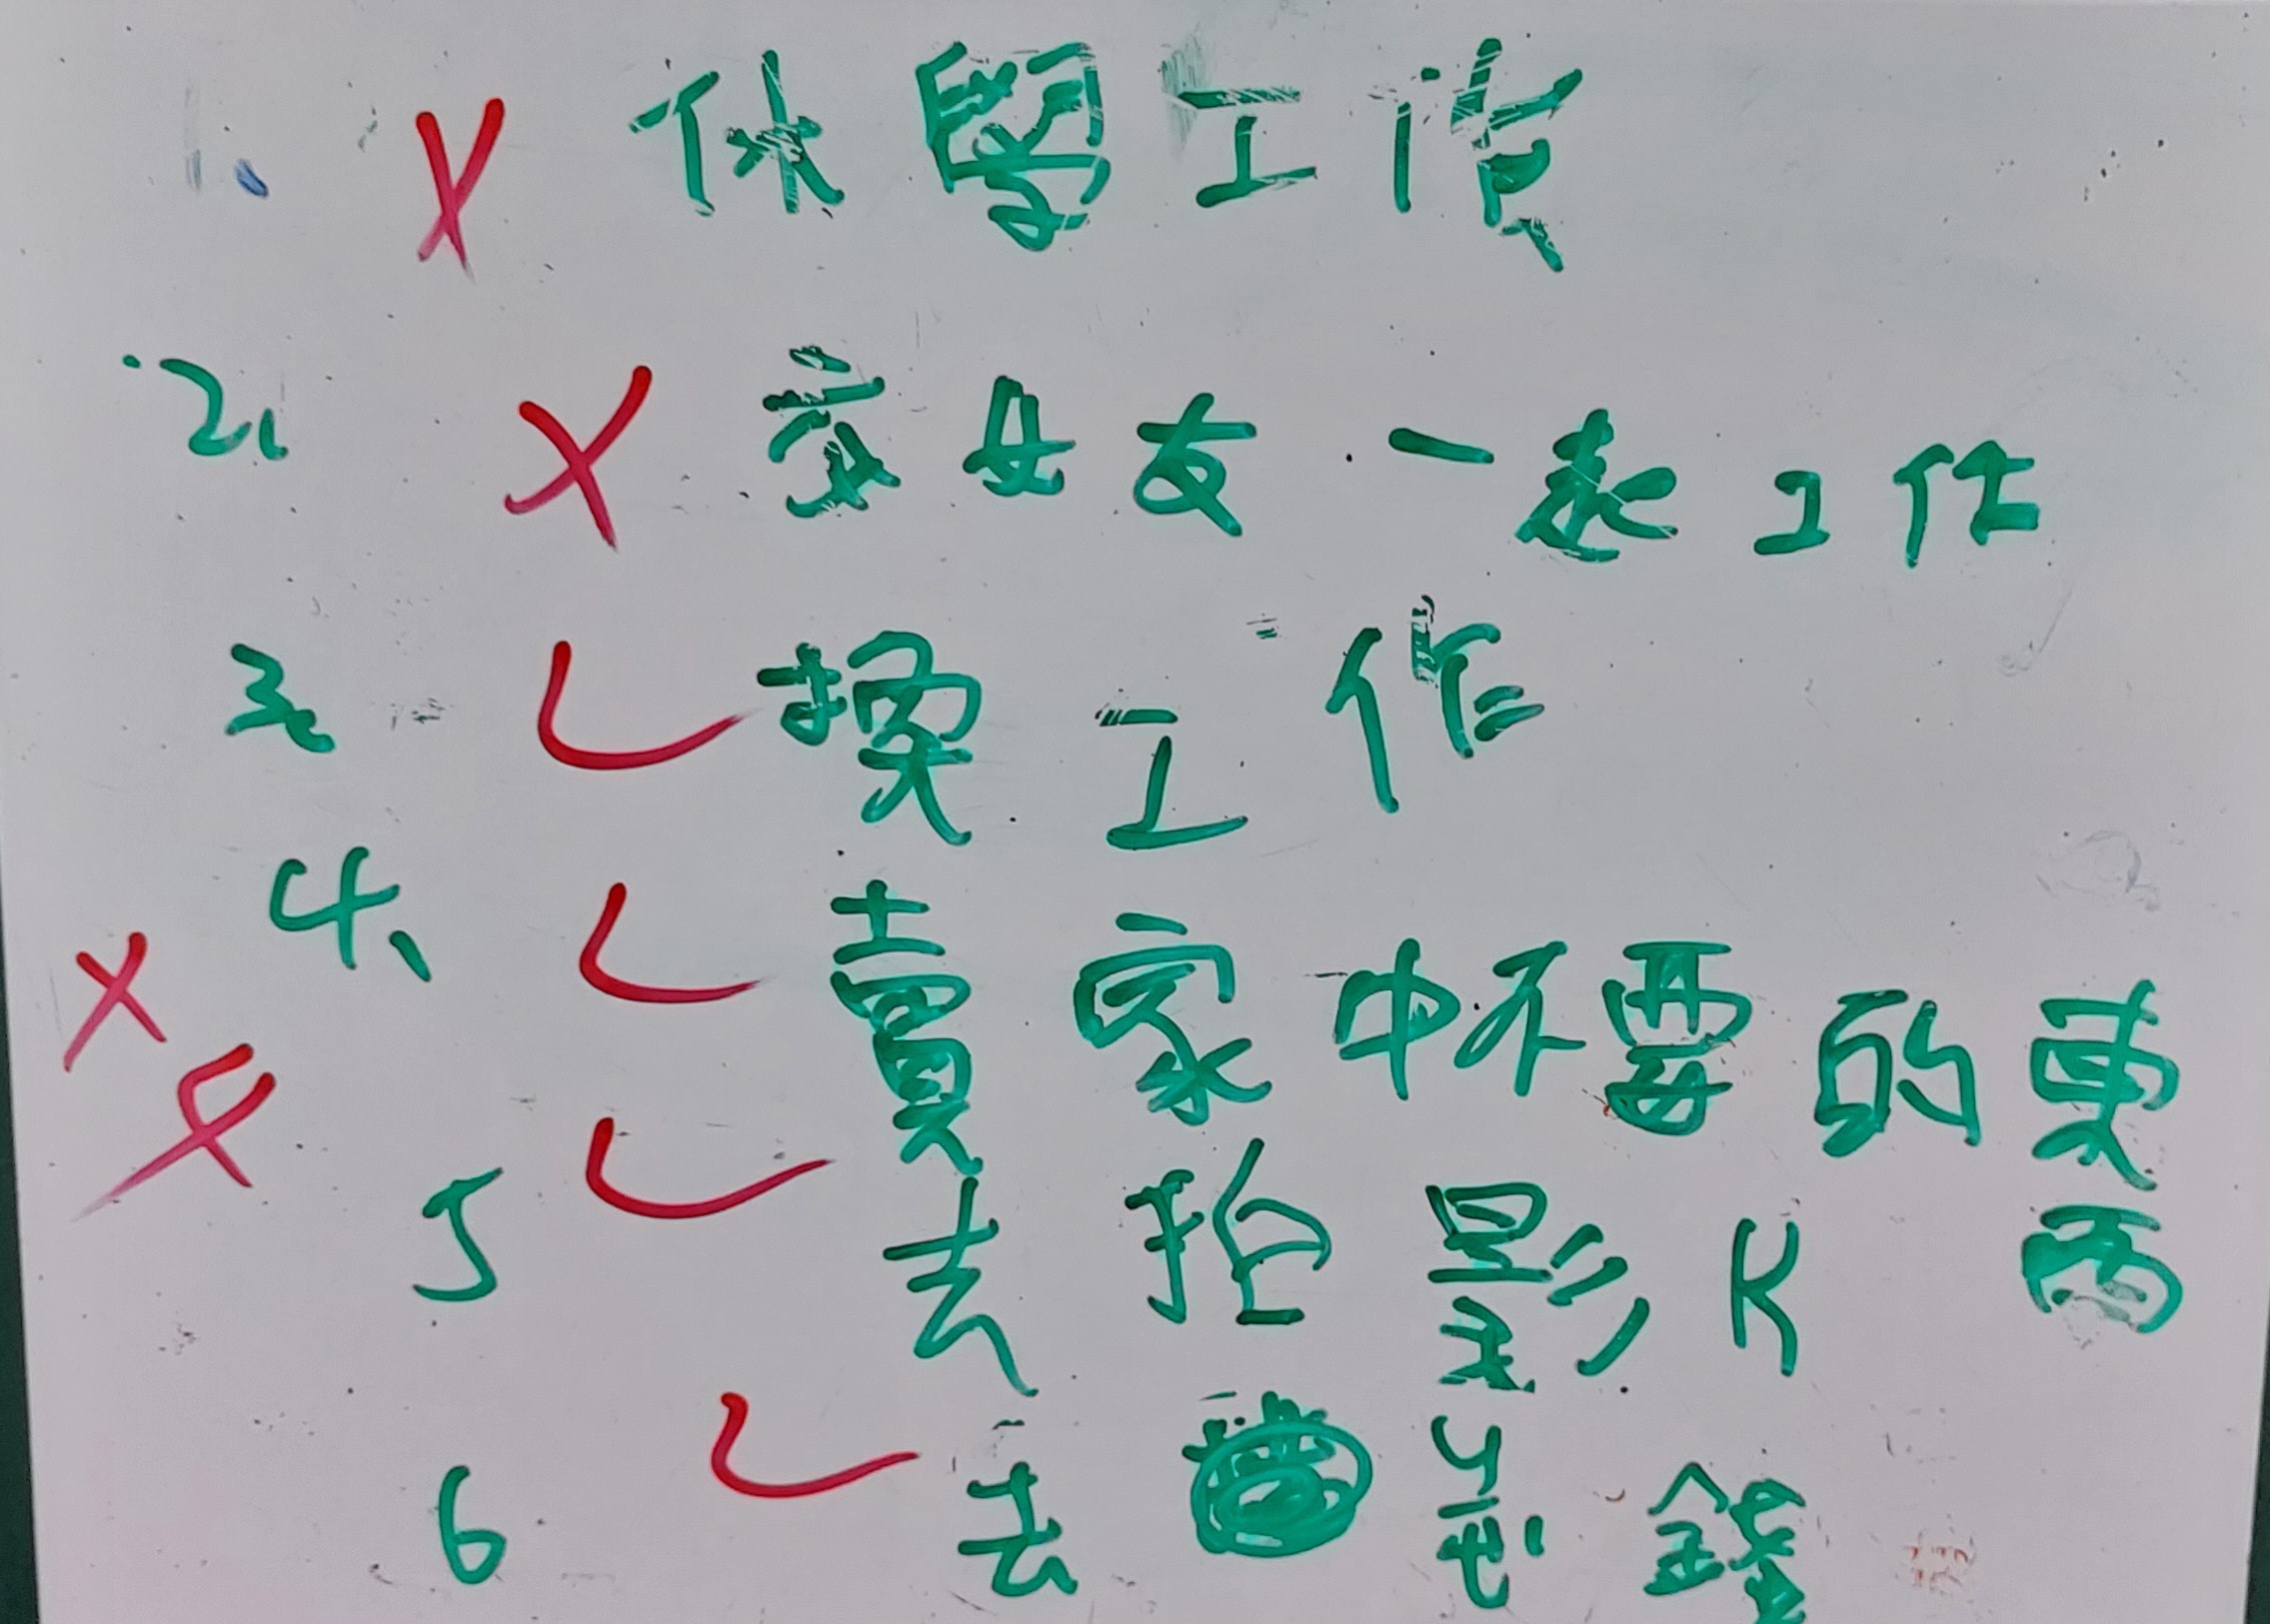 1、 X 休學工作
2、 X 交女友一起工作
3、 ✓ 換工作
4、 ✓ 賣家中不要的東西
5 ✓ 去拍影K
6 ✓ 去 錢